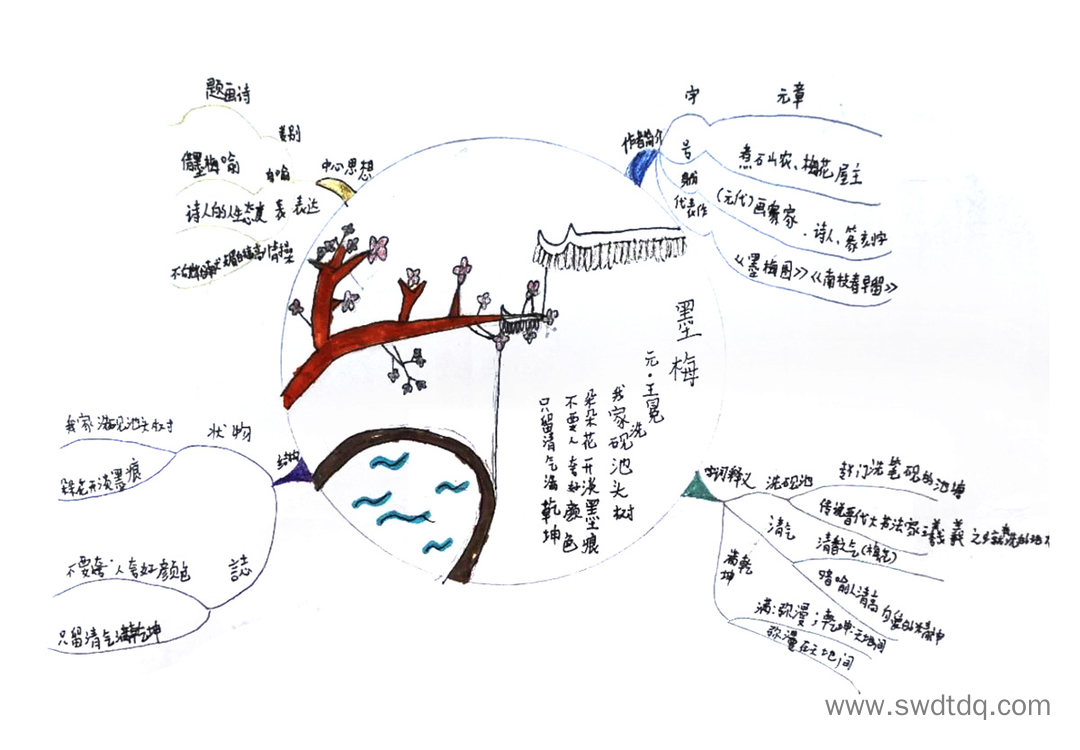 墨梅
元·王冕
我家洗砚池头树
朵朵花开淡墨痕
不要人夸好颜色
只留清气满乾坤
中心思想
类别
题画诗
借墨梅喻
表达
诗人的人生态度
情操
作者简介
字
元章
号
煮石山农、梅花屋主
身份
(元代)画家、诗人、篆刻家
代表作
《墨梅图》《南枝春早图》
结构
状物
我家洗砚池头树
朵朵花开淡墨痕
不要人夸好颜色
只留清气满乾坤
字词释义
洗砚池
洗笔砚的池塘
传说晋代大书法家王羲
清气
清香之气
暗喻人清高自爱的精神
满乾坤
满:弥漫;乾坤:天地间
弥漫在天地间
www.swdtdq.com